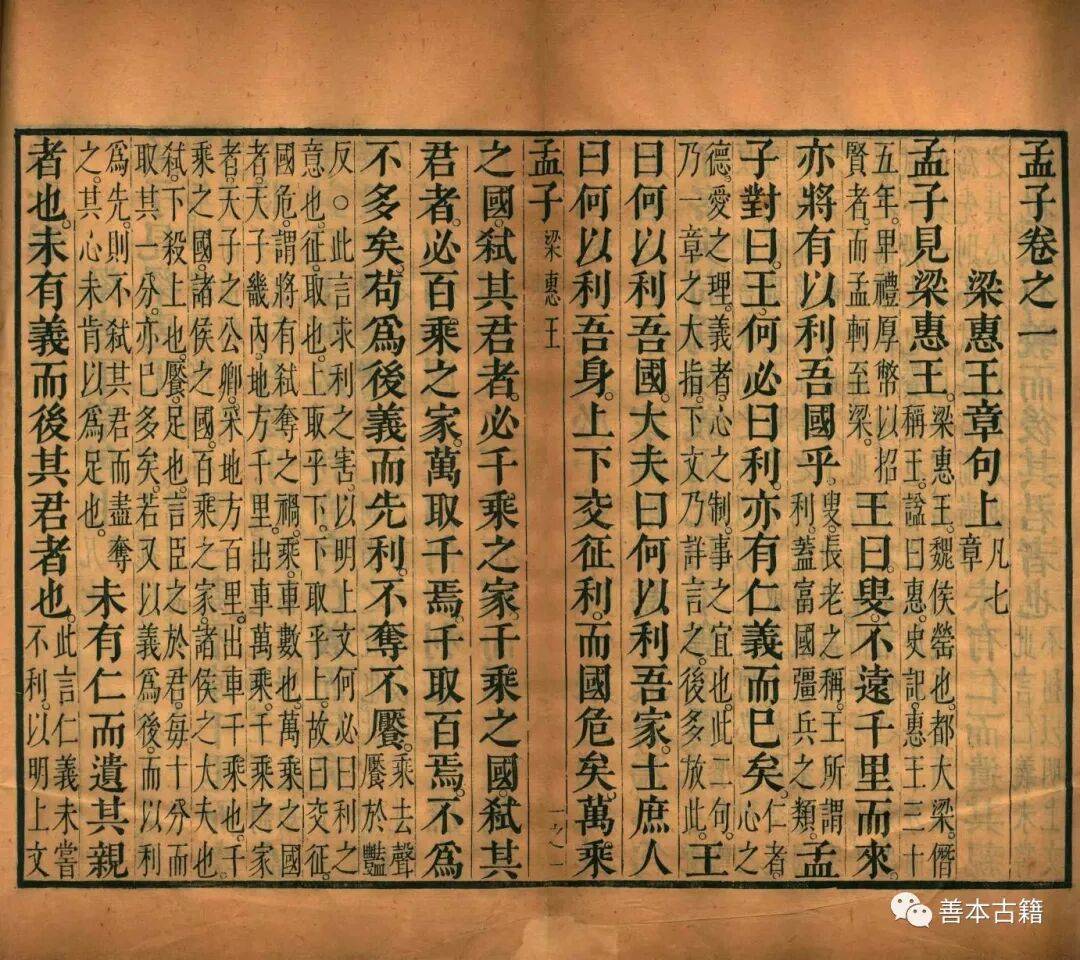 孟子卷之一
梁惠王章句上
凡七
章
孟子見梁惠王。
梁惠王。魏侯罃也。都大梁。僭
稱王。諡曰惠。史記。惠王三十
五年。卑禮厚幣以招
賢者。而孟軻至梁。
王曰。叟。不遠千里而來。
亦將有以利吾國乎。
叟。長老之稱。王所謂
利。蓋富國彊兵之類。
孟
子對曰。王。何必曰利。亦有仁義而已矣。
仁者。
心之
德。愛之理。義者。心之制。事之宜也。此二句。
乃一章之大指。下文乃詳言之。後多放此。
王
曰何以利吾國。大夫曰何以利吾家。士庶人
曰何以利吾身。上下交征利。而國危矣。萬乘
孟子
梁惠王
之國。弒其君者。必千乘之家。千乘之國弒其
君者。必百乘之家。萬取千焉。千取百焉。不爲
不多矣。苟爲後義而先利。不奪不饜。
乘去聲
饜於豔
反。○此言求利之害。以明上文何必曰利之
意也。征。取也。上取乎下。下取乎上。故曰交征。
國危。謂將有弒奪之禍。乘。車數也。萬乘之國
者。天子畿內。地方千里。出車萬乘。千乘之家
者。天子之公卿。采地方百里。出車千乘也。千
乘之國。諸侯之國。百乘之家。諸侯之大夫也。
弒。下殺上也。饜。足也。言臣之於君。每十分而
取其一分。亦已多矣。若又以義爲後。而以利
爲先。則不弒其君而盡奪
之。其心未肯以爲足也。
未有仁而遺其親
者也。未有義而後其君者也。
此言仁義未嘗
不利。以明上文
善本古籍